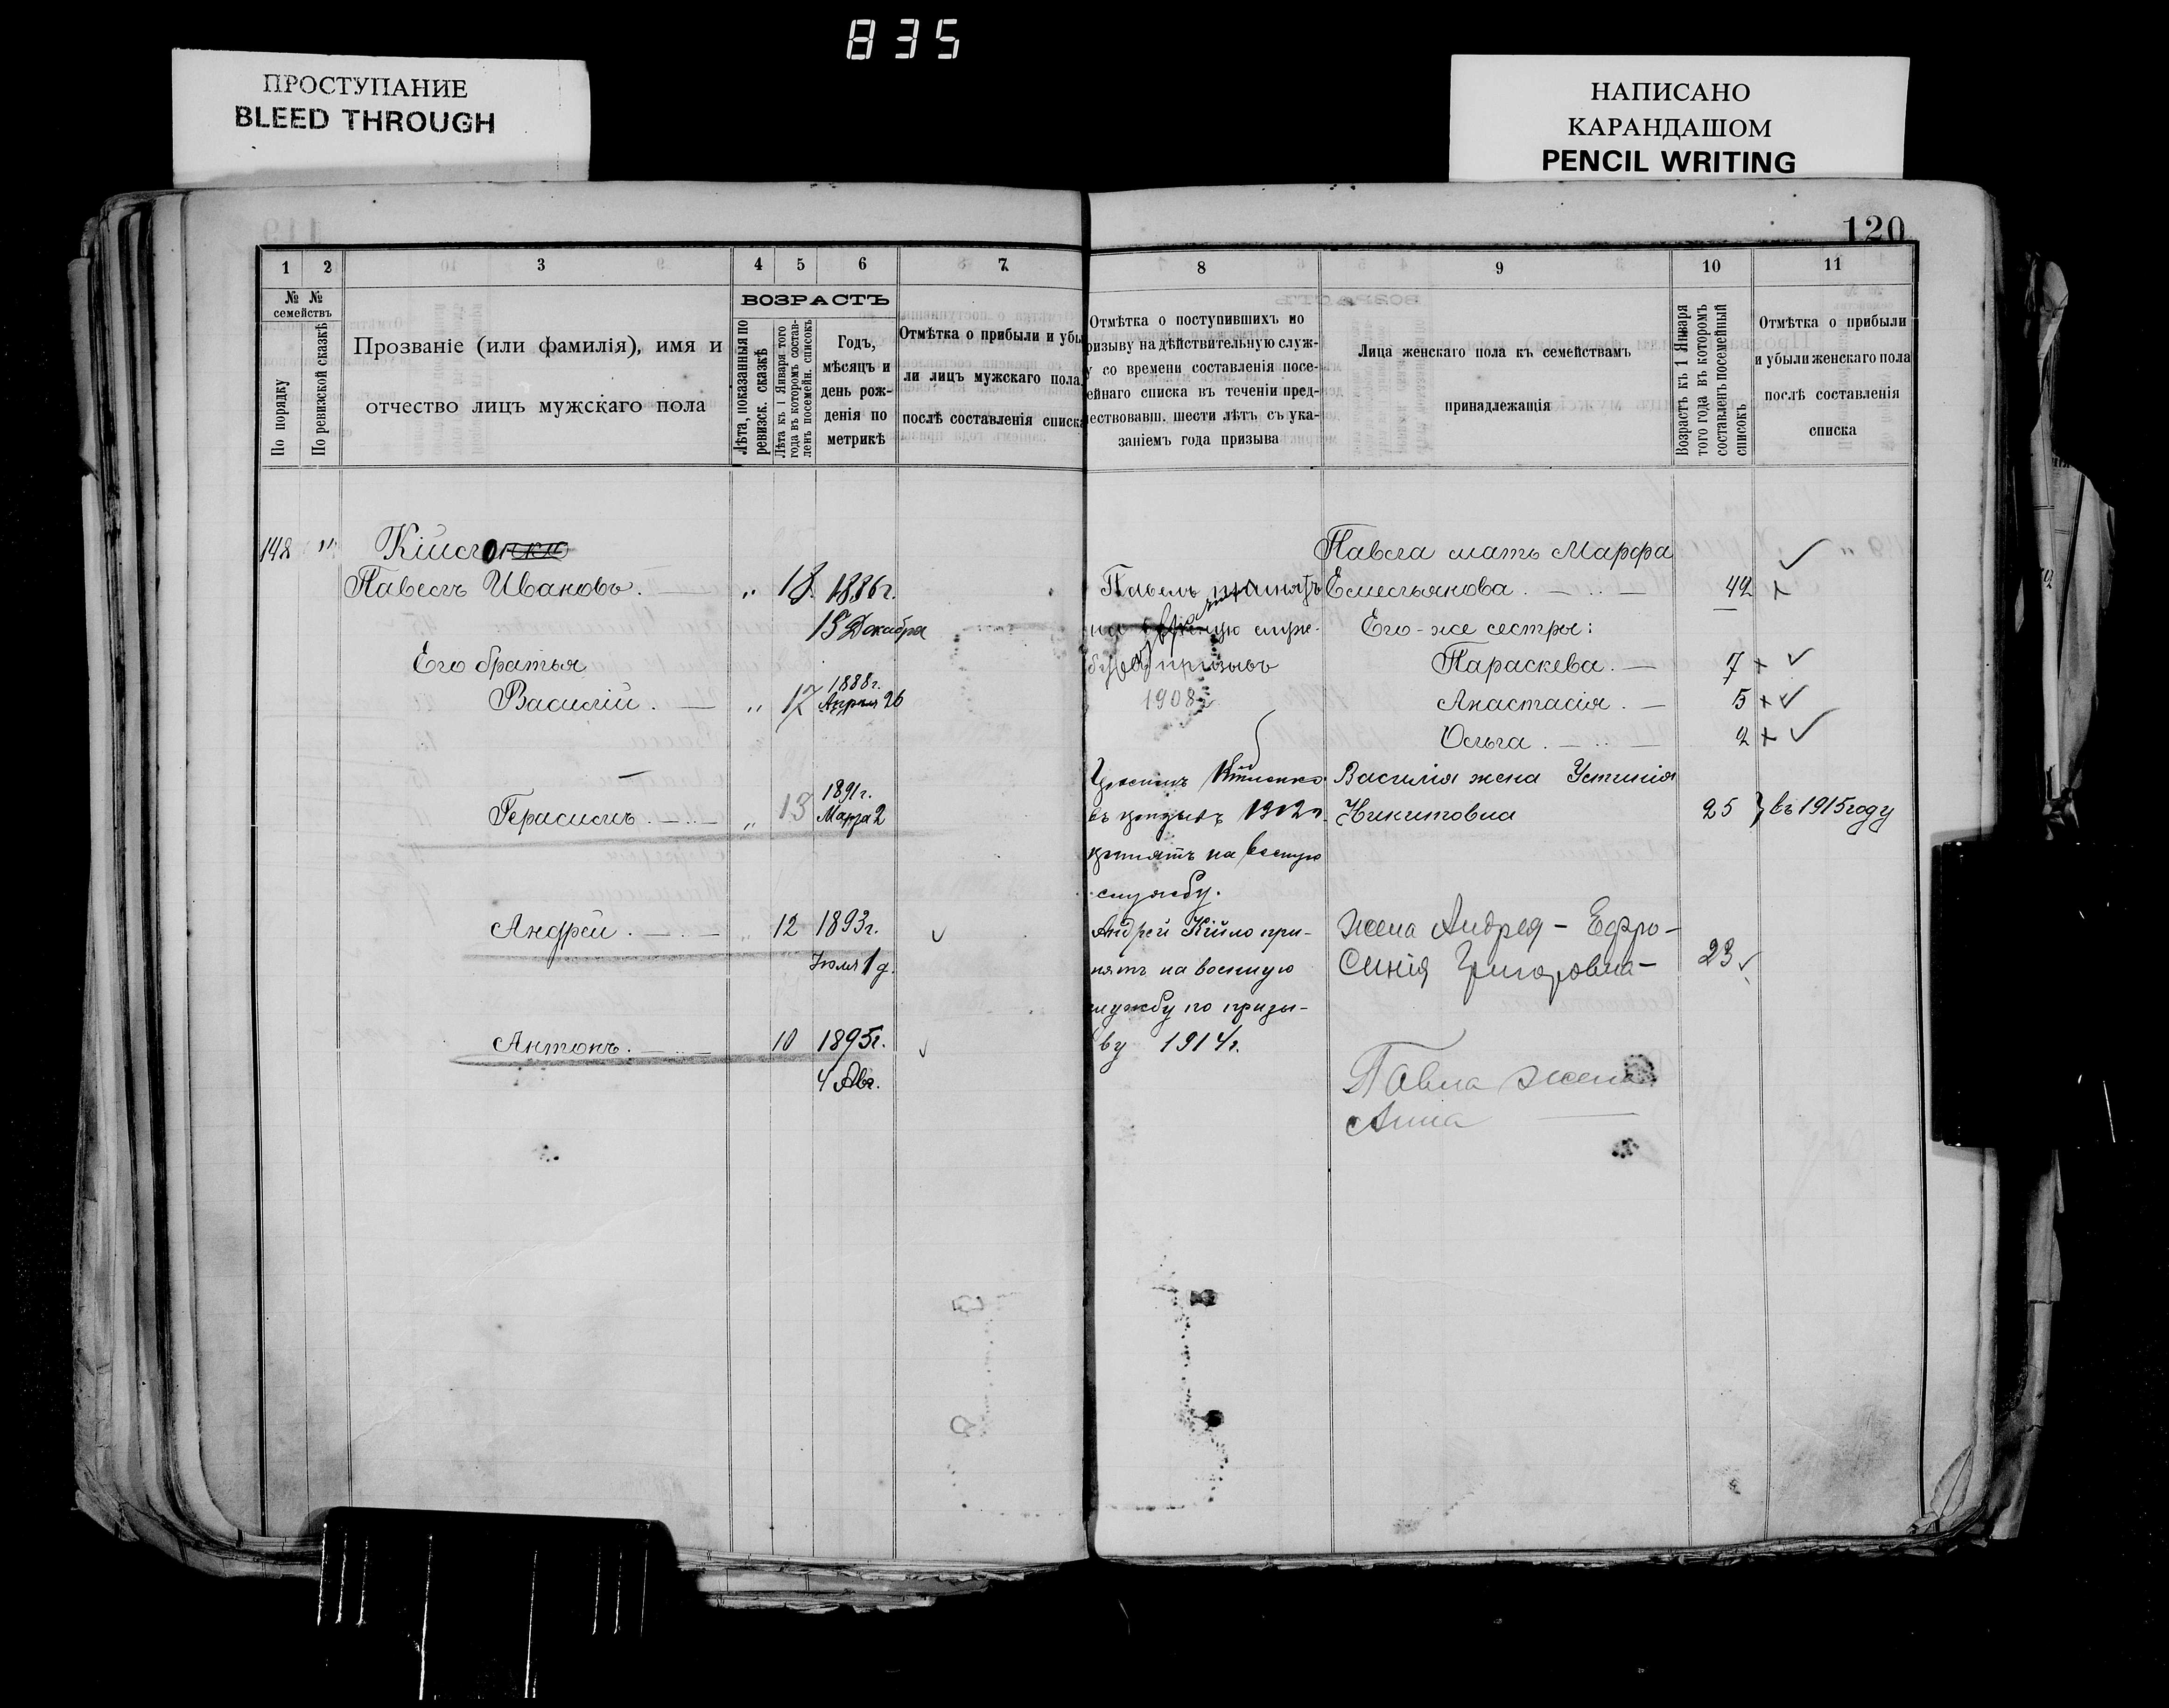 835
ПРОСТУПАНИЕ
BLEED THROUGH
НАПИСАНО
КАРАНДАШОМ
PENCIL WRITING
120
1 2 3 4 5 6 7.
№ № семействъ
По порядку
По ревизской сказкѣ
Прозваніе (или фамилія), имя и
отчество лицъ мужскаго пола
ВОЗРАСТЪ
Лѣта, показанныя по
ревизск. сказкѣ
Лѣта къ 1 Января того
года въ которомъ состав-
ленъ посемейн. списокъ
Годъ,
мѣсяцъ и
день рож-
денія по
метрикѣ
Отмѣтка о прибыли и убы
ли лицъ мужскаго пола,
послѣ составленія списка
148 " Кійло
Павелъ Ивановъ. " 18 1886г.
15 Декабря
Его братья
1888г.
Василій. " 17 Апрля 26
1891г.
Герасимъ. " 13 Марта 2
Андрей. 12 1893г.
Іюля 1 д.
Антонъ. 10 1895г.
4 Авг.
8 9 10 11
Отмѣтка о поступившихъ по
ризыву на дѣйствительную служ-
у со времени составленія посе-
ейнаго списка въ теченіи пред-
ествовавш. шести лѣтъ съ ука-
заніемъ года призыва
Лица женскаго пола къ семействамъ
принадлежащія
Возрастъ къ 1 Января
того года въ которомъ
составленъ посемейный
списокъ
Отмѣтка о прибыли
и убыли женскаго пола
послѣ составленія
списка
Павелъ принятъ
на службу призывъ
1908
Герасимъ
въ призывъ 1912г.
принятъ на военную
службу.
Андрей Кійло при-
нятъ на военную
службу по призы-
ву 1914г.
Павла мать Марфа
Емельянова. 42 ×
Его-же сестры:
Параскева. 7 × ✓
Анастасія. 5 × ✓
Ольга. 2 × ✓
Василія жена Устинія
Никитовна 25 } въ 1915 году
Жена Андрея - Ефро-
синія Григоровна - 23 ✓
Павла жена
Анна